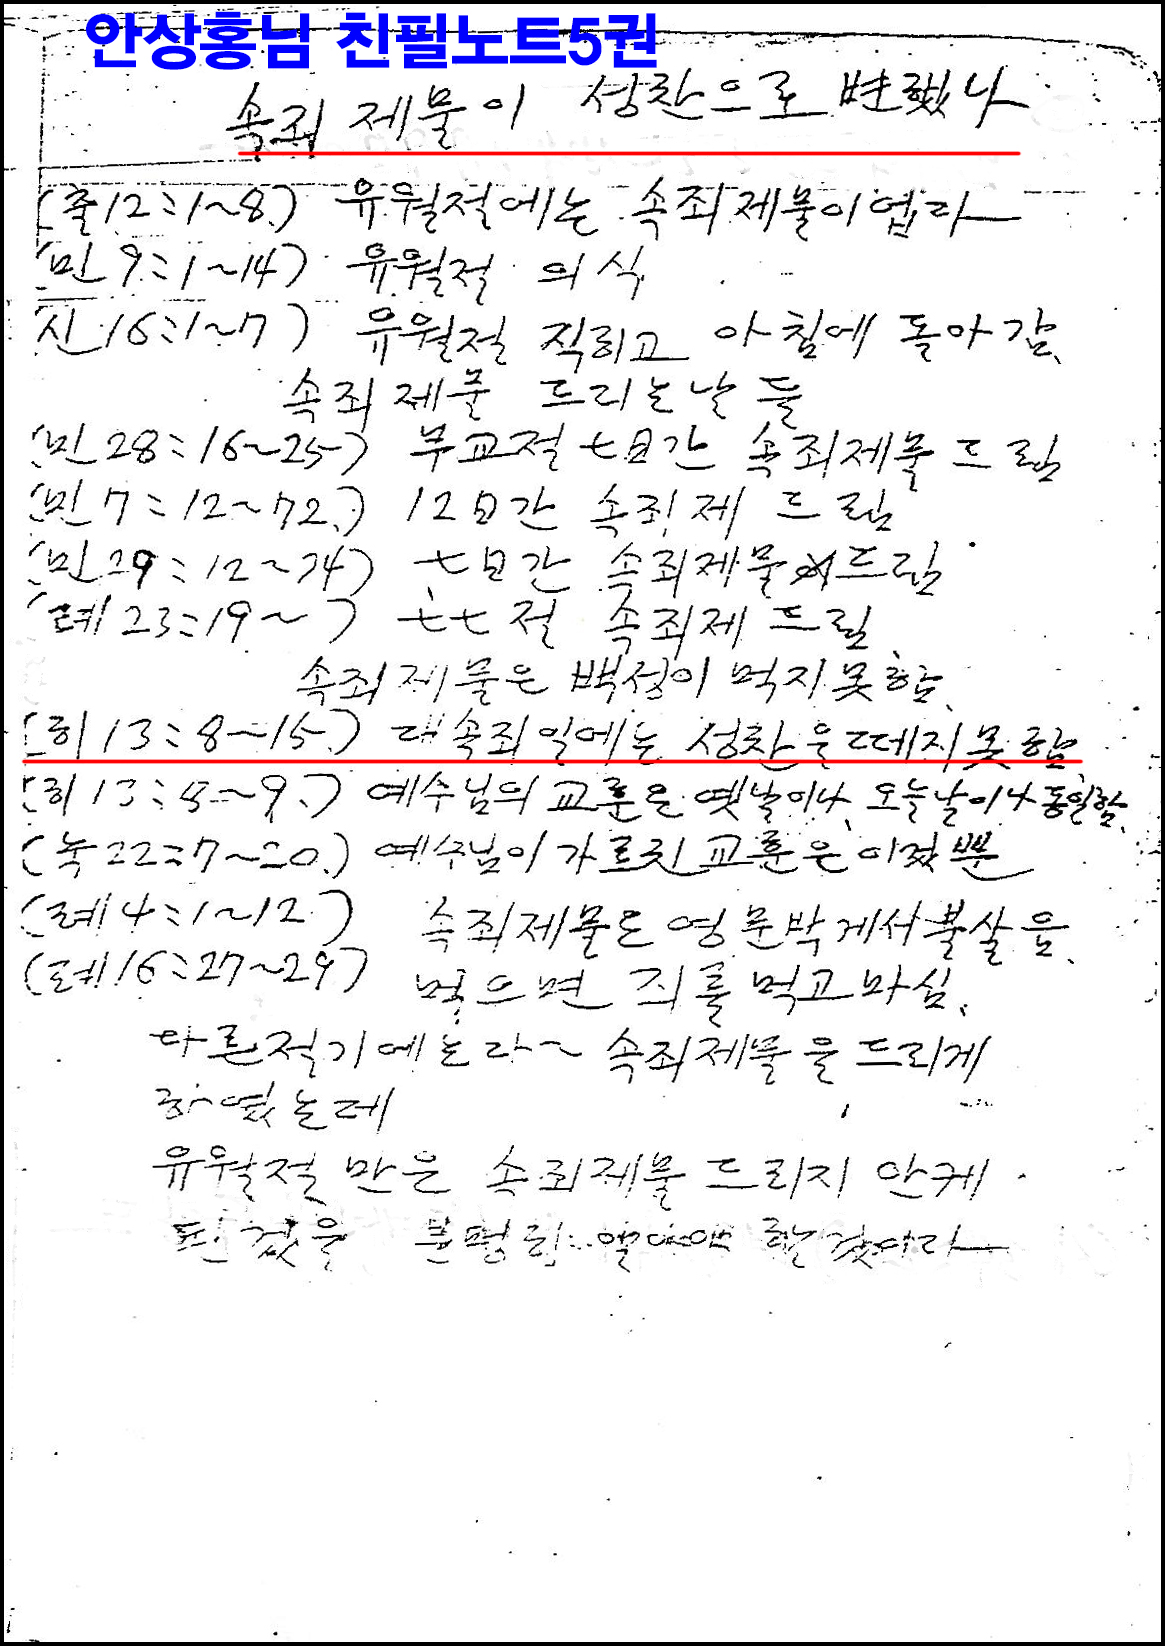 안상홍님 친필노트5권
속죄 제물이 성찬으로 변했나
(출12:1~8.) 유월절에는 속죄제물이업다
(민9:1~14) 유월절 의식
신16:1~7) 유월절 직히고 아침에 돌아감.
속죄제물 드리는날들
(민28:16~25) 무교절 七日간 속죄제물드림
(민7:12~72.) 12日간 속죄제 드림
(민29:12~34) 七日간 속죄제물 드림
(레23:19~ ) 七七절 속죄제 드림
속죄제물은 백성이 먹지못함.
(히13:8~15.) 대속죄일에는 성찬을떼지못함.
(히13:8~9.) 예수님의 교훈은 옛날이나, 오늘날이나 동일함.
(눅22:7~20.) 예수님이 가르친 교훈은 이것뿐
(레4:1~12) 속죄제물은 영문박게서불살음.
(레16:27~29) 먹으면 죄를먹고마심.
다른절기에는다~ 속죄제물을드리게
하였는데
유월절만은 속죄제물드리지 안케
된것을 분명히 알아야 할것이다